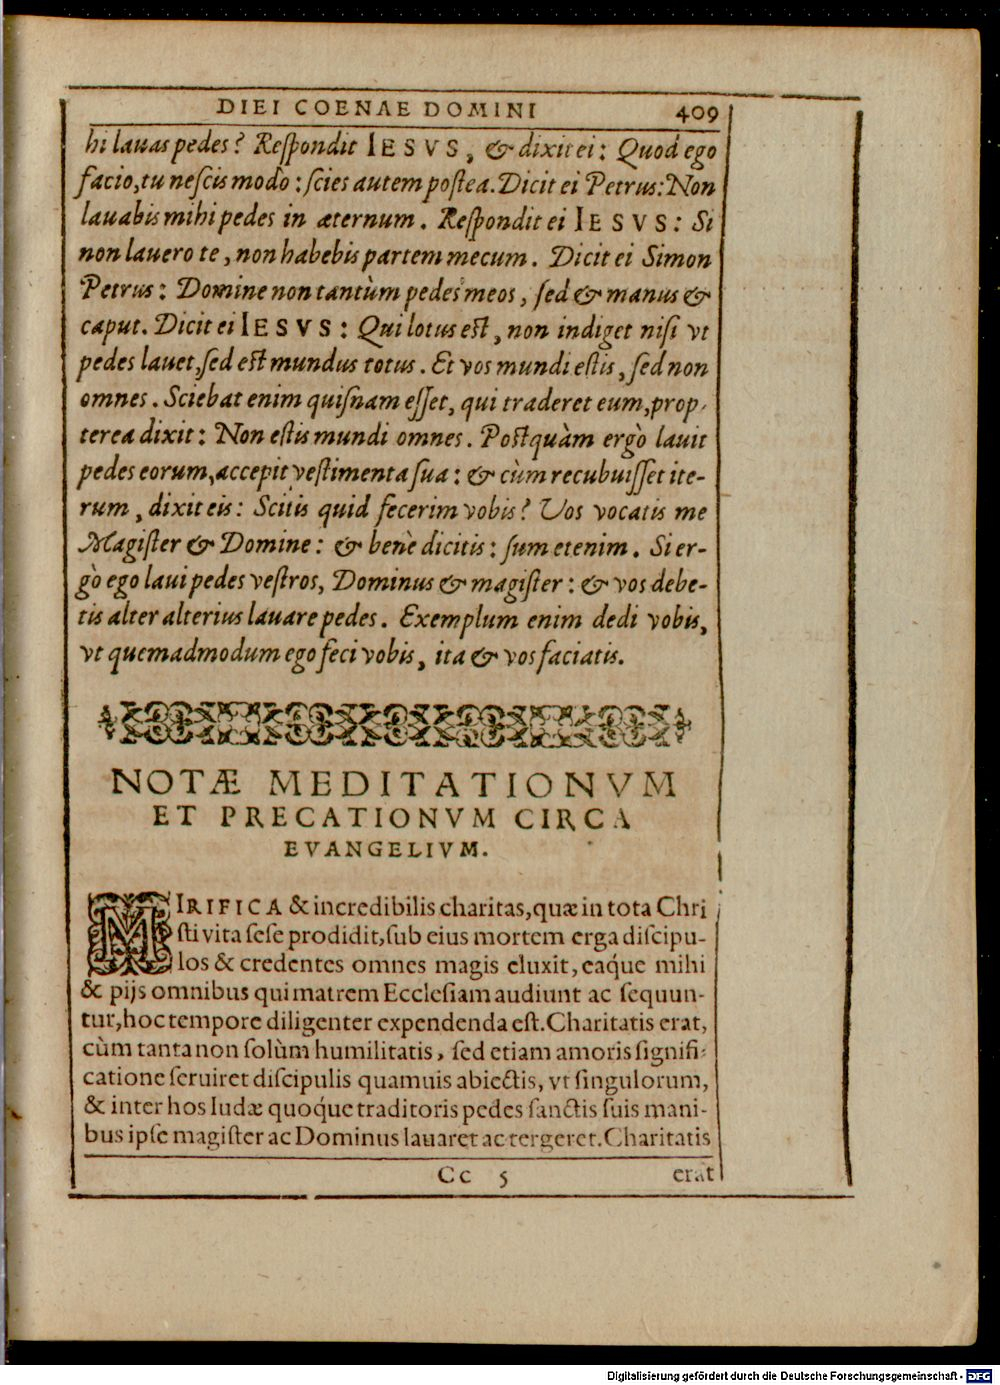 DIEI COENAE DOMINI 409
hi lauas pedes? Respondit IESVS, & dixit ei: Quod ego
facio, tu nescis modò: scies autem postea. Dicit ei Petrus: Non
lauabis mihi pedes in æternum. Respondit ei IESVS: Si
non lauero te, non habebis partem mecum. Dicit ei Simon
Petrus: Domine non tantùm pedes meos, sed & manus &
caput. Dicit ei IESVS: Qui lotus est, non indiget nisi vt
pedes lauet, sed est mundus totus. Et vos mundi estis, sed non
omnes. Sciebat enim quisnam esset, qui traderet eum, prop-
terea dixit: Non estis mundi omnes. Postquàm ergò lauit
pedes eorum, accepit vestimenta sua: & cùm recubuisset ite-
rum, dixit eis: Scitis quid fecerim vobis? Vos vocatis me
Magister & Domine: & benè dicitis: sum etenim. Si er-
gò ego laui pedes vestros, Dominus & magister: & vos debe-
tis alter alterius lauare pedes. Exemplum enim dedi vobis,
vt quemadmodum ego feci vobis, ita & vos faciatis.
NOTÆ MEDITATIONVM
ET PRECATIONVM CIRCA
EVANGELIVM.
MIRIFICA & incredibilis charitas, quæ in tota Chri
sti vita sese prodidit, sub eius mortem erga discipu-
los & credentes omnes magis eluxit, eaq́ue mihi
& pijs omnibus qui matrem Ecclesiam audiunt ac sequun-
tur, hoc tempore diligenter expendenda est. Charitatis erat,
cùm tanta non solùm humilitatis, sed etiam amoris signifi-
catione seruiret discipulis quamuis abiectis, vt singulorum,
& inter hos Iudæ quoq́ue traditoris pedes sanctis suis mani-
bus ipse magister ac Dominus lauaret ac tergeret. Charitatis
Cc 5 erat
Digitalisierung gefördert durch die Deutsche Forschungsgemeinschaft - DFG